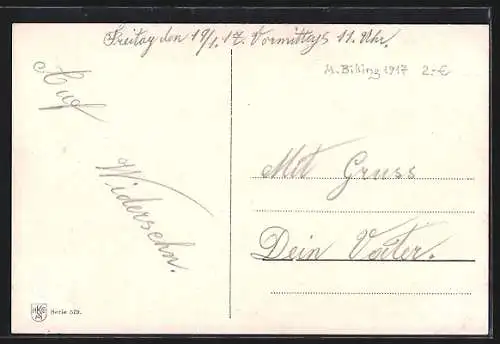 Freitag den 19/1. 17. Vormittags 11. Uhr.
M. Billing 1917 2.-€
Auf
Widersehn.
Mit Gruss
Dein Vater.
Serie 579.